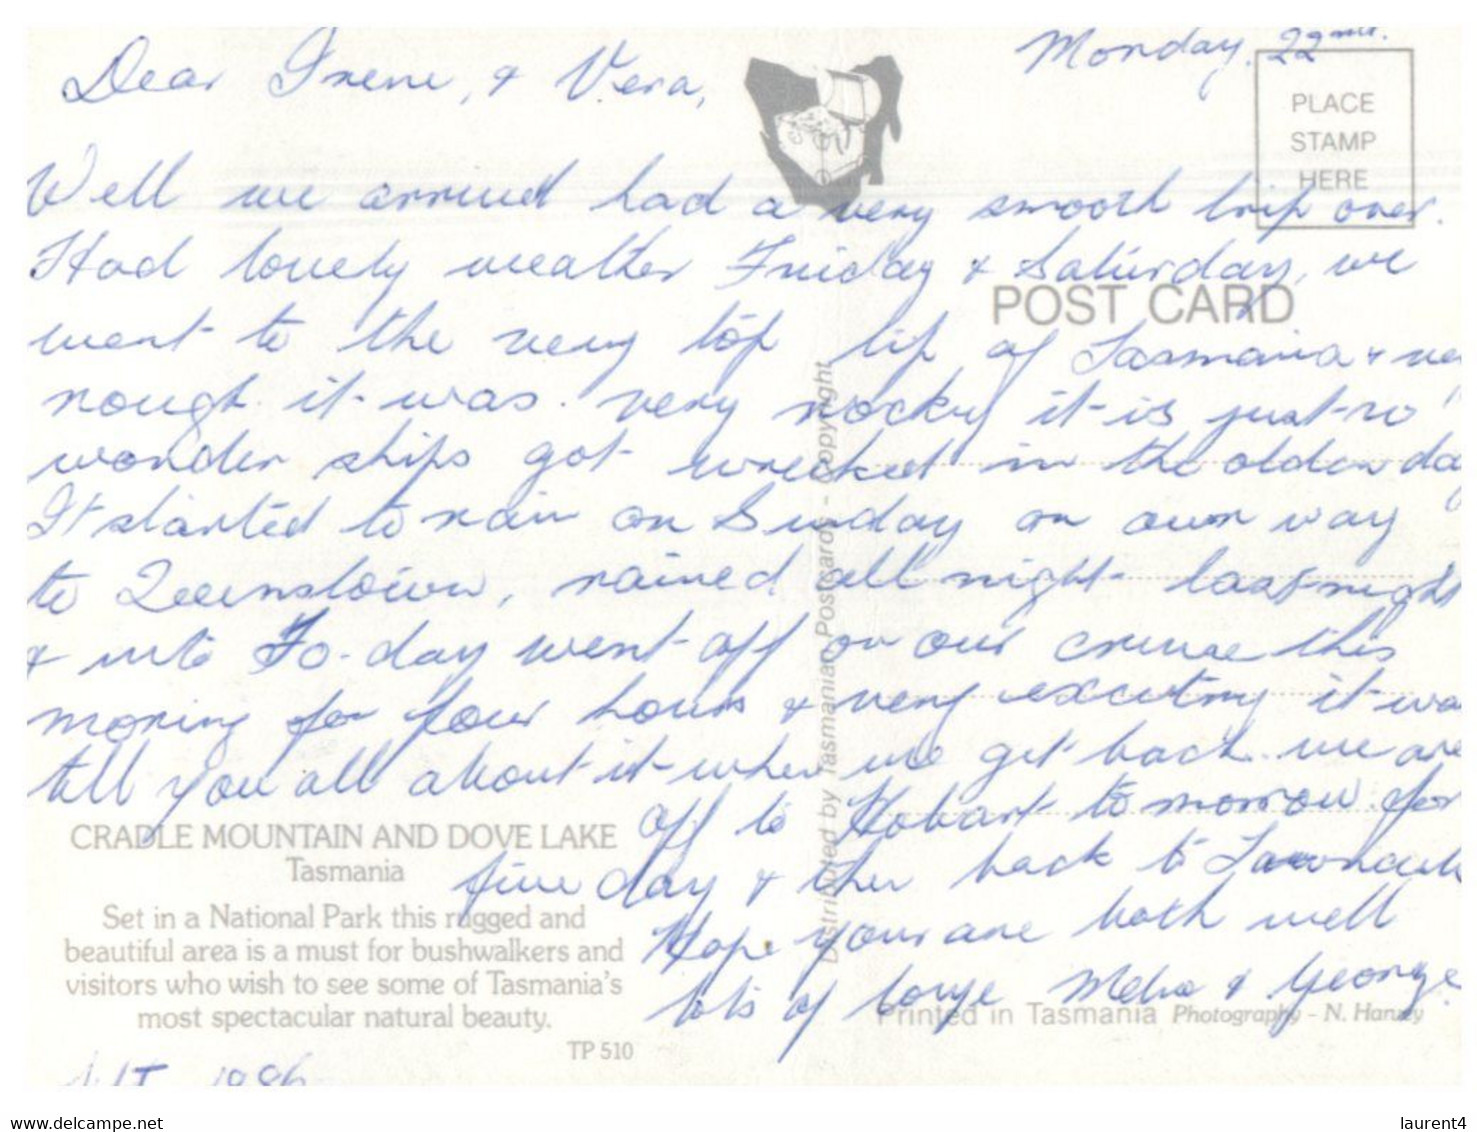 Monday. 22nd.
Dear Irene, & Vera,
PLACE
STAMP
HERE
Well we arrived had a very smooth trip over.
Had lovely weather Friday & Saturday, we
POST CARD
went to the very top tip of Tasmania &
rough it was. very rocky it is just no
wonder ships got wrecked in the olden da
It started to rain on Sunday on our way
to Queenstown, rained all night last night
& into To-day went off on our cruise this
moring for four hours & very exciting it wa
tell you all about it when we get back. we are
off to Hobart tomorrow for
five day & then back to
Hope your are both well
lots of love & George.
CRADLE MOUNTAIN AND DOVE LAKE
Tasmania
Set in a National Park this rugged and
beautiful area is a must for bushwalkers and
visitors who wish to see some of Tasmania's
most spectacular natural beauty.
TP 510
Distributed by Tasmanian Postcards - Copyright
Printed in Tasmania Photography - N. Hanvey
1986
www.delcampe.net
laurent4